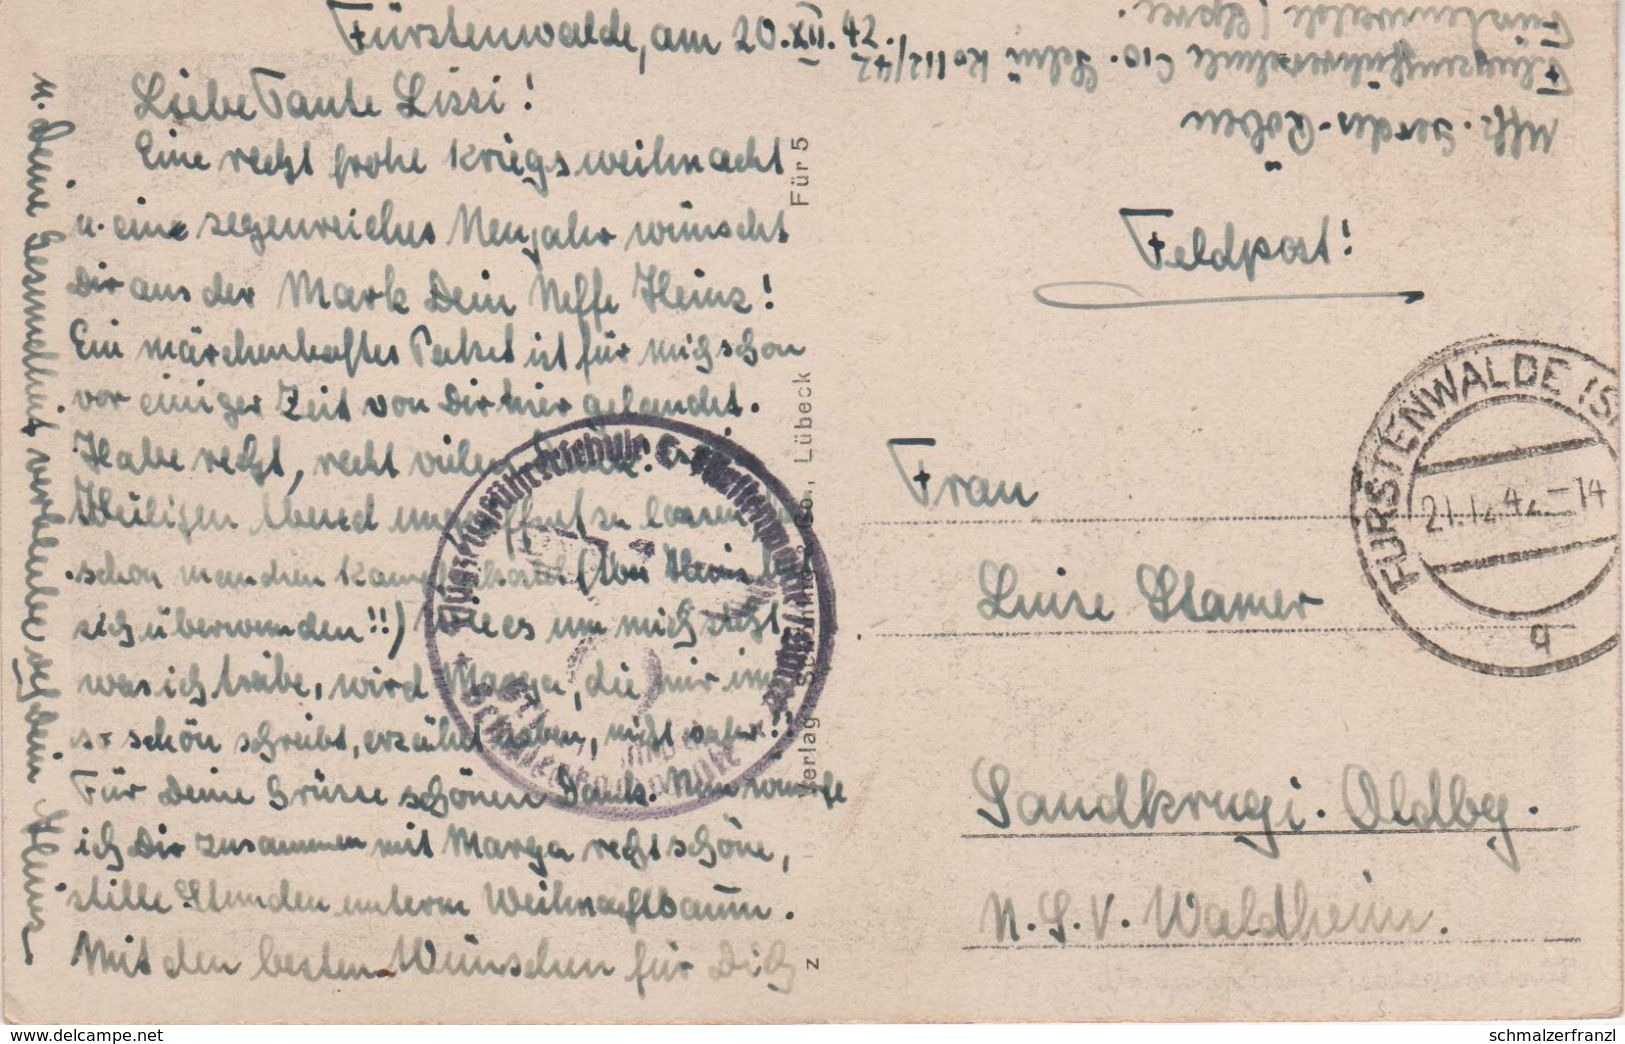 Fürstenwalde, am 20.XII.42.
Liebe Tante Lissi!
Eine recht frohe Kriegsweihnacht
u. eine segenreiches Neujahr wünscht
Dir aus der Mark Dein Neffe Heinz!
Ein märchenhaftes Paket ist für mich schon
vor einiger Zeit von Dir hier gelandet.
Habe recht, recht vielen Dank.
Heiligen Abend
schon manchen
sich überwunden!!) Wie es um mich steht,
was ich treibe, wird Marga, die mir im
so schön schreibt, erzählt haben, nicht wahr!?
Für Deine Grüsse schönen Dank. Nun wünsche
ich Dir zusammen mit Marga recht schöne,
stille Stunden unterm Weihnachtsbaum.
Mit den besten Wünschen für Dich
u. Deine Gesundheit verbleibe ich Dein Heinz
Uffz. Gerdes-Röben
Flugzeugführerschule C10. Schü Ko 112/42
Fürstenwalde / Spree.
Feldpost!
Frau
Luise Stamer
Sandkrug i. Oldbg.
N.S.V. Waldheim.
FÜRSTENWALDE (S
21.12.42.-14
q
Flugzeugführerschule C Fürstenwalde/Spree
Für 5
Verlag Schöning & Co., Lübeck
z
www.delcampe.net
schmalzerfranzl